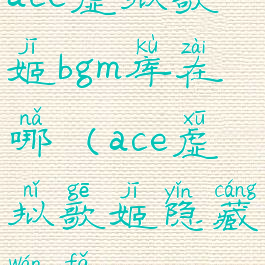 ace虚拟歌
jī kù zài
姬bgm库在
nǎ xū
哪（ace虚
nǐ gē jī yǐn cáng
拟歌姬隐藏
wán fǎ